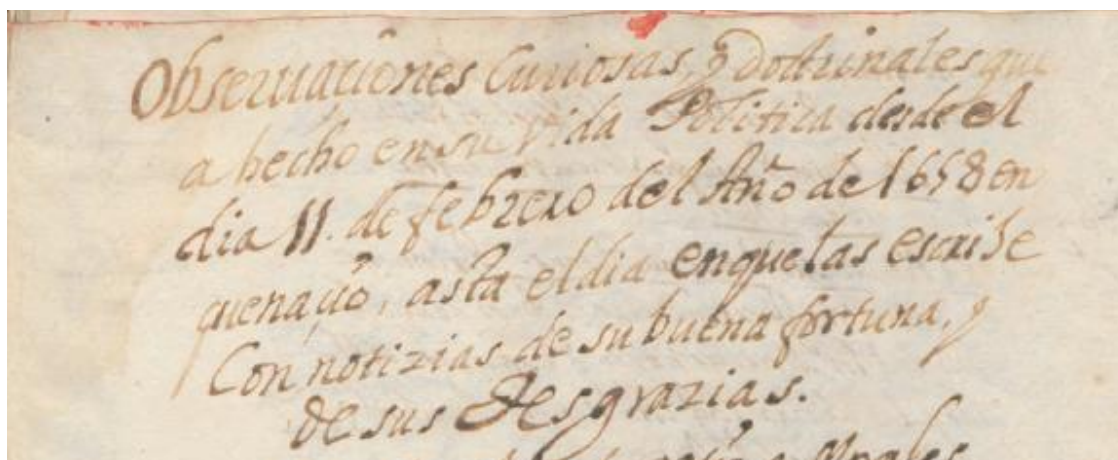 Obseruaciones Curiosas, y Dottrinales que
a hecho en su Vida Politica desde el
dia 11. de febrero del Año de 1658 en
quenaçio, asta el dia enquelas escribe
Con notizias de su buena fortuna, y
de sus Desgrazias.